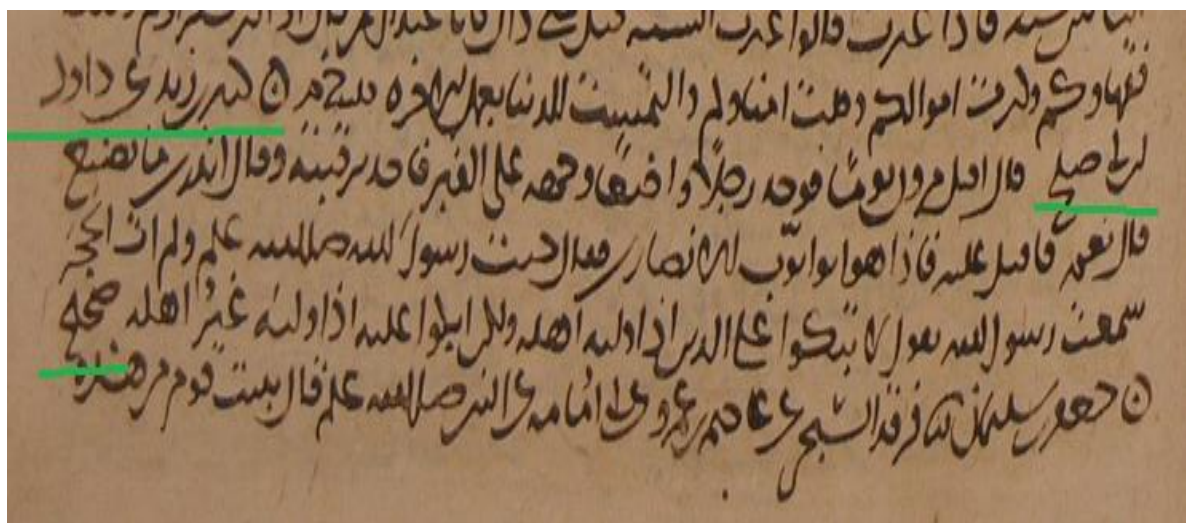 فاذا غيرت قالوا غيرت السنه قيل متى ذاك يابا عبد الرحمن قال اذا كثر
فقهاوكم وكثرت اموالكم وقلت امناوكم والتمست الدنيا بعمل الاخره كثير بن زيد عن داود
بن ابي صلح قال اقبل مروان يوما فوجد رجلا واضعا وجهه على القبر فاخذ برقبته وقال اتدري ما تصنع
قال نعم فاقبل عليه فاذا هو ابو ايوب الانصاري فقال جيت رسول الله صلى الله عليه وسلم ولم ات الحجر
سمعت رسول الله يقول لا تبكوا على الدين اذا وليه اهله ولكن ابكوا عليه اذا وليه غير اهله صحيح
جعفر بن سليمن ثنا فرقد السبخي عن عاصم بن عمرو عن ابي امامه عن النبي صلى الله عليه وسلم قال يبيت قوم من هذه